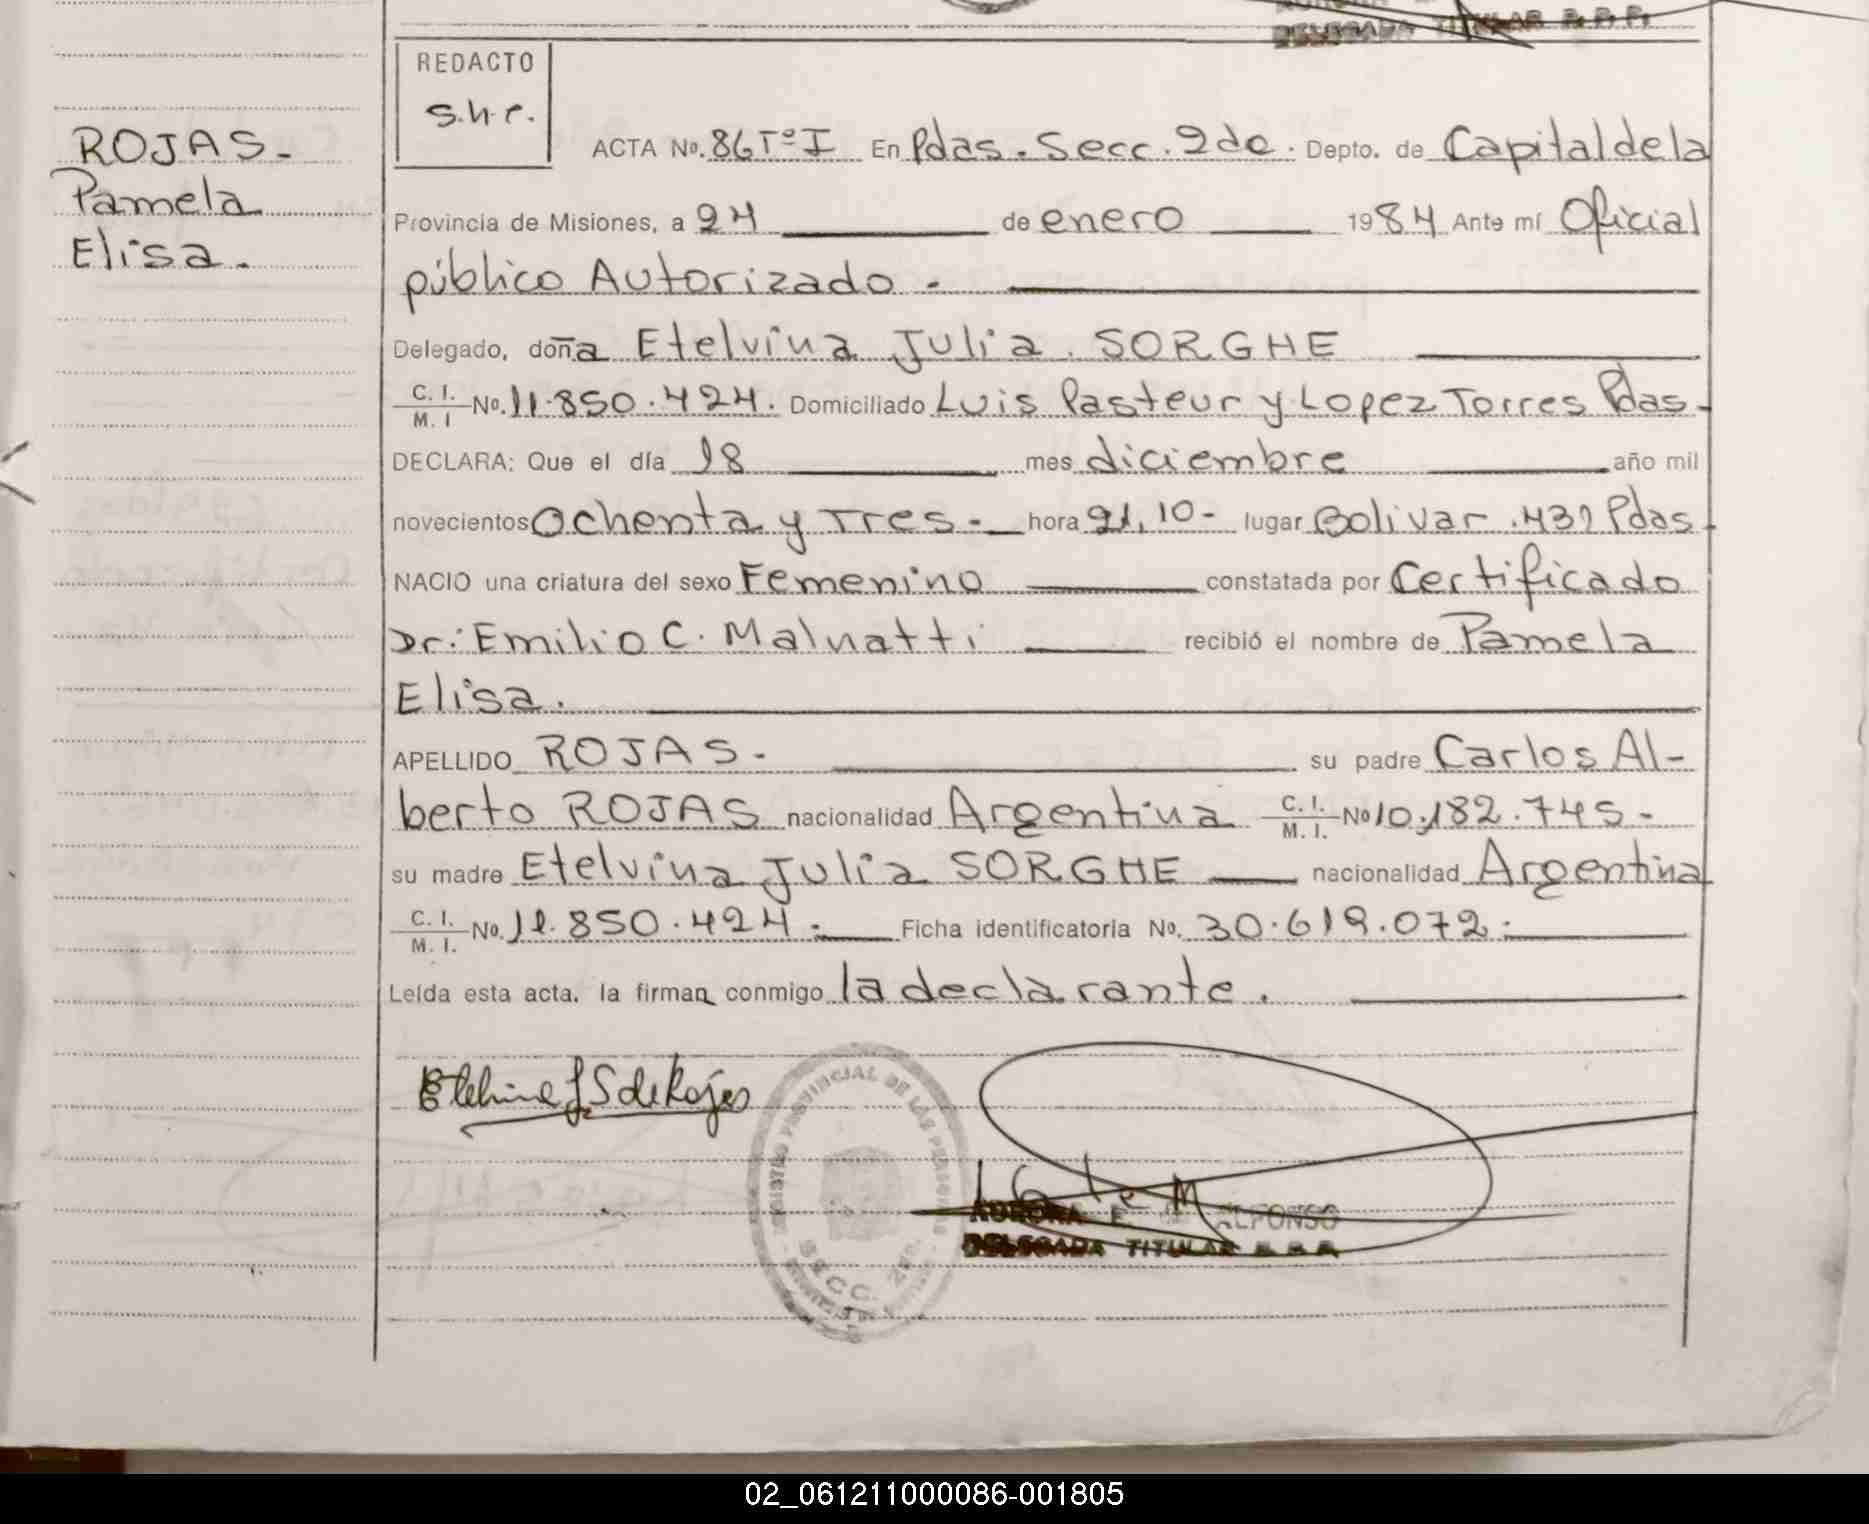 DELEGADA TITULAR R. P. P.
REDACTO
s.h.c.
ROJAS-
Pamela
Elisa.
ACTA No. 86 Tº I En Pdas. Secc. 2da. Depto. de Capital de la
Provincia de Misiones, a 24 de enero 1984 Ante mí Oficial
público Autorizado.
Delegado, doña Etelvina Julia SORGHE
C. I. M. I No. 11.850.424. Domiciliado Luis Pasteur y Lopez Torres Pdas-
DECLARA: Que el día 18 mes diciembre año mil
novecientos Ochenta y Tres- hora 21,10- lugar Bolivar 432 Pdas-
NACIO una criatura del sexo Femenino constatada por Certificado
Dr: Emilio C. Malnatti recibió el nombre de Pamela
Elisa.
APELLIDO ROJAS- su padre Carlos Al-
berto ROJAS nacionalidad Argentina C. I. M. I. No 10.182.745-
su madre Etelvina Julia SORGHE nacionalidad Argentina
C. I. M. I. No. 11.850.424.- Ficha identificatoria No. 30.619.072.-
Leída esta acta, la firman conmigo la declarante.
Etelvina J S de Rojas
REGISTRO PROVINCIAL DE LAS PERSONAS
SECC. 2da.
AURORA E. ALFONSO
DELEGADA TITULAR R. P. P.
02_061211000086-001805